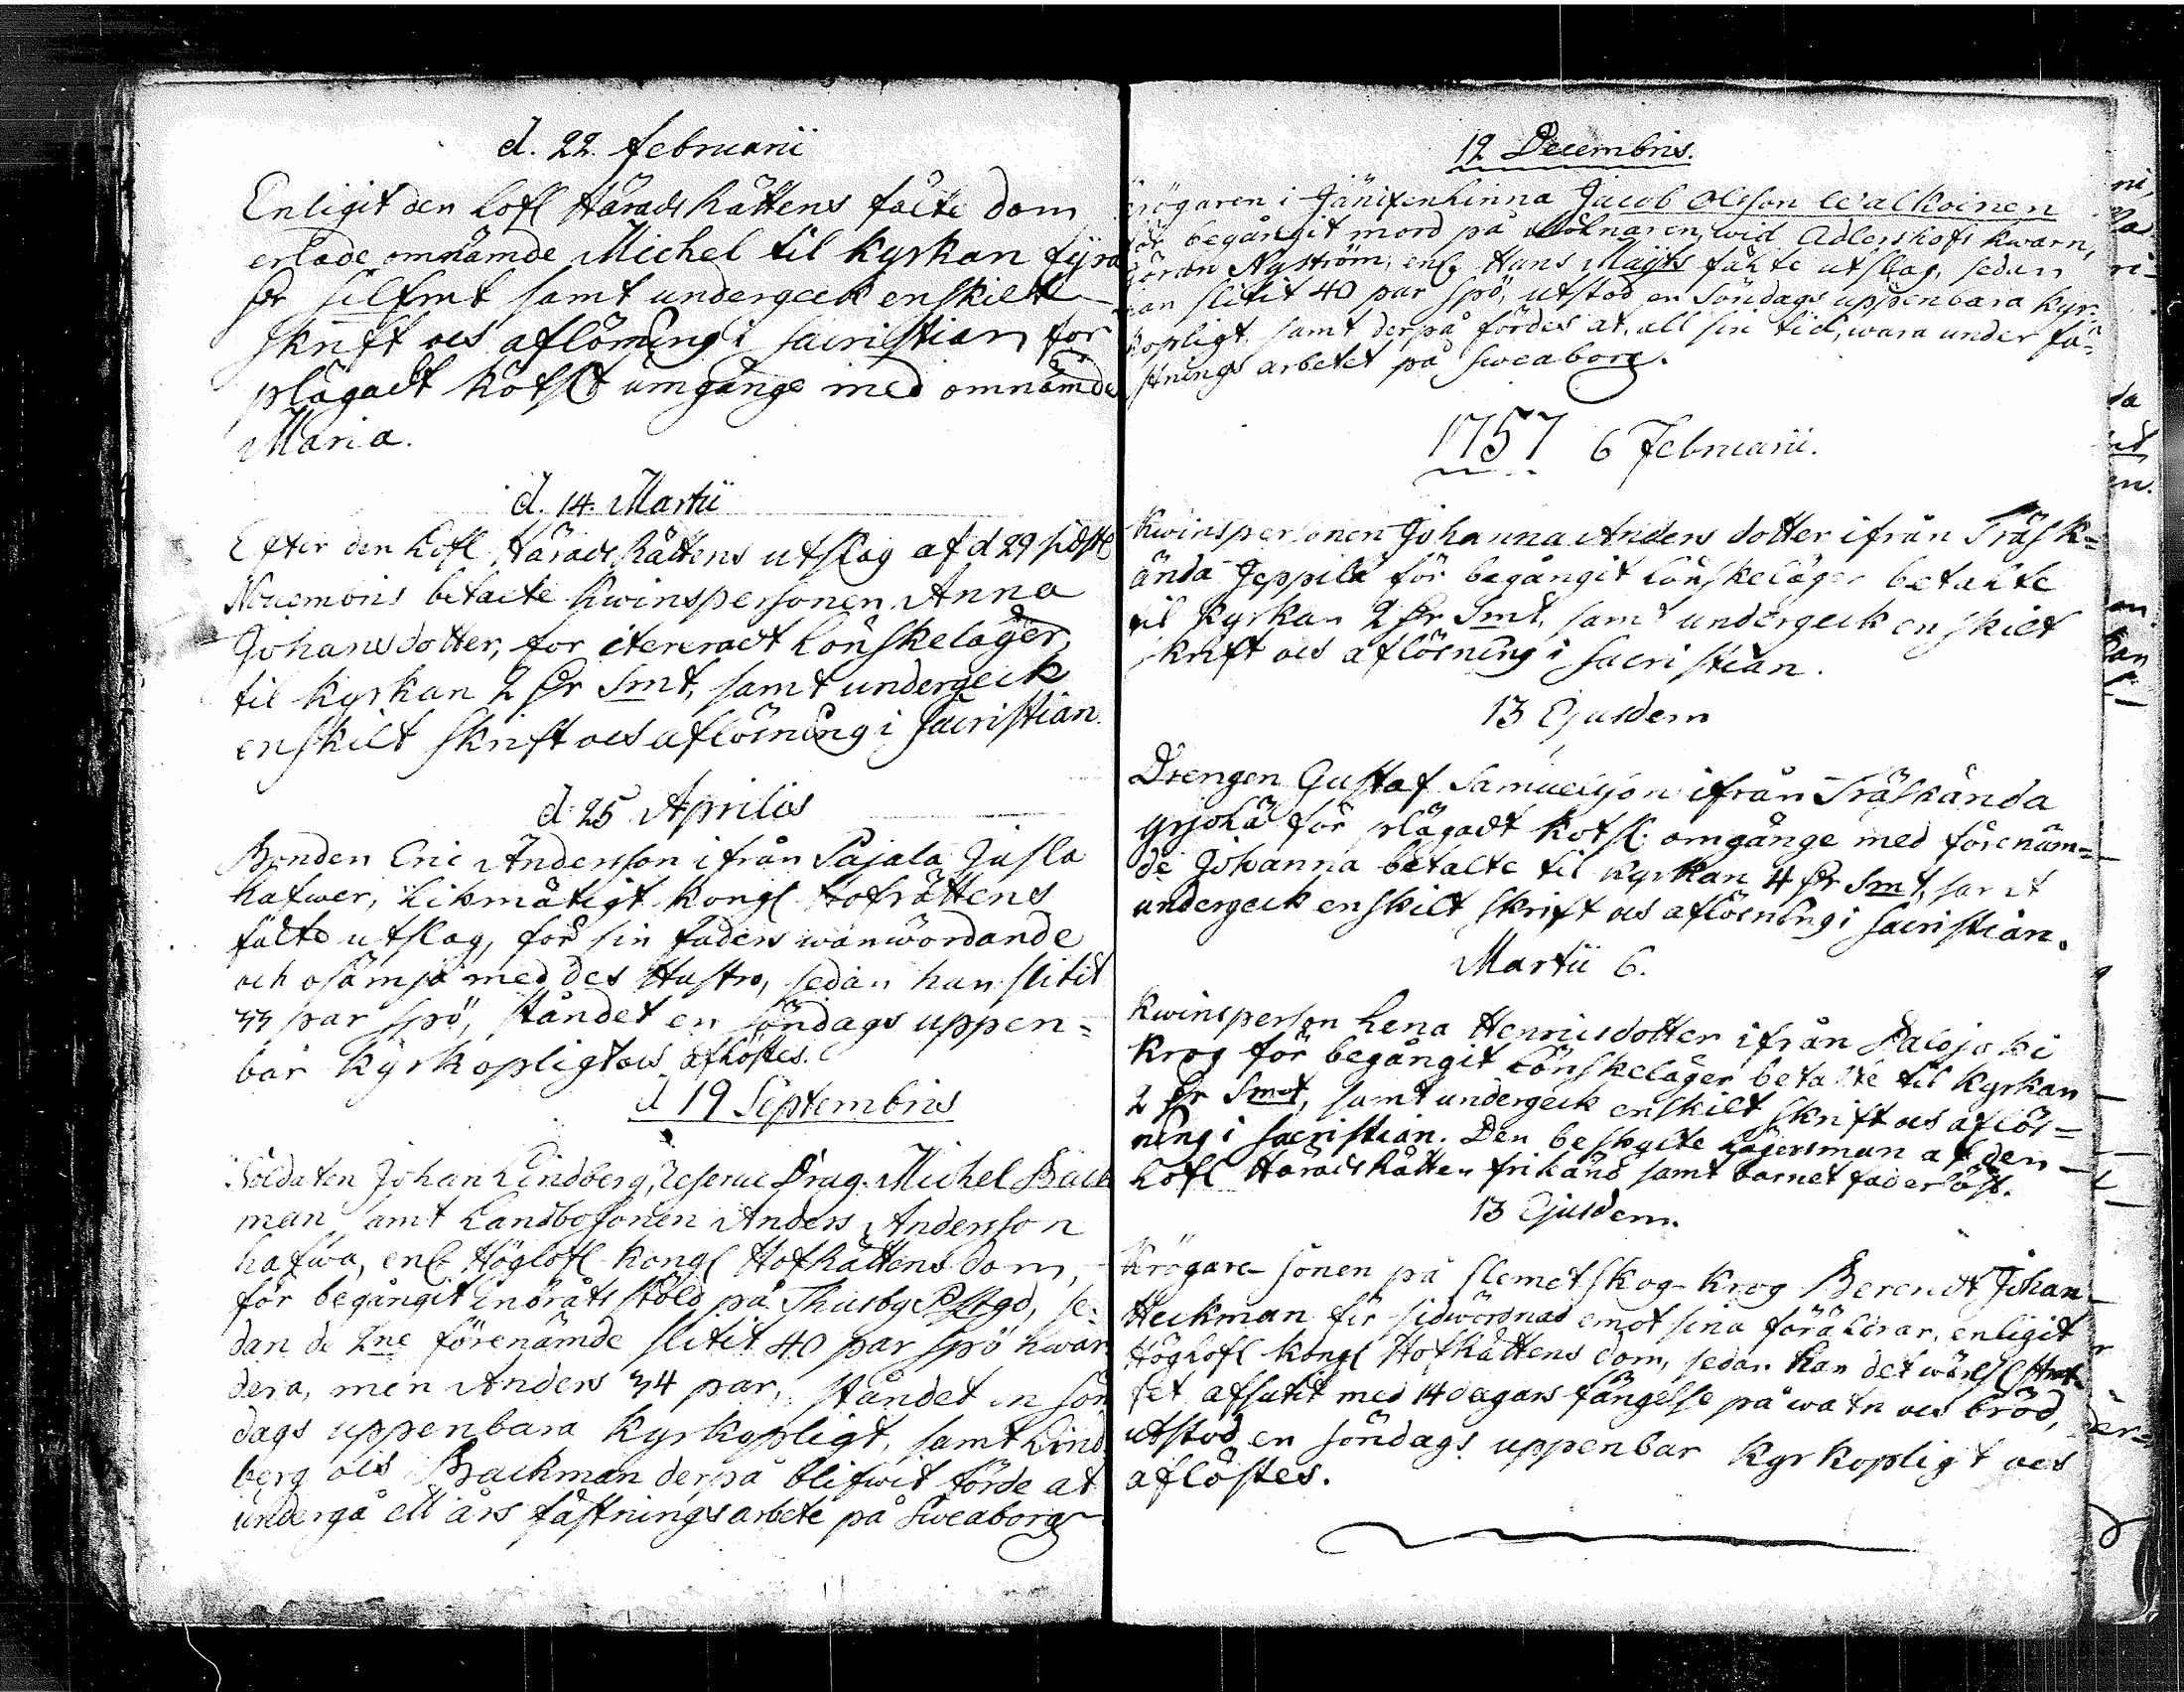 d. 22. februarii
Enligit den Lofl Härads Rättens fälte dom
erlade omnämde Michel til kyrkan fyra
dr silfmt samt undergeck enskilt
skrift ock aflösning i sacristian för
plägadt kötsl umgänge med omnämde
Maria.
d. 14. Martii
Efter den Lofl Härads Rättens utslag af d 29 sidstl
Novembris betalte kwinspersonen Anna
Johansdotter, för itereradt Lönskeläger,
til kyrkan 2 Dr Smt, samt undergeck
enskilt skrift ock aflösning i sacristian.
d. 25 Aprilis
Bonden Eric Andersson ifrån Pajala Jusla
hafwer, likmätigt kongl Hofrättens
fälte utslag, för sin faders wanwördande
och osämja med des Hustro, sedan han slitit
33 par spö, ståndet en söndags uppen=
bar kyrkopligt ock aflöstes.
d 19 Septembris
Soldaten Johan Lindberg, Reserve Drag. Michel Back
man samt Landbosonen Anders Andersson
hafwa, enl Höglofl kongl HofRättens dom,
för begångit Inbråts stöld på Thusby Pstgd, se-
dan de 2ne förenämde slitit 40 par spö hwar
dera, men Anders 34 par, ståndet en sön
dags uppenbara kyrkopligt, samt Lind
berg ock Backman derpå blifwit förde at
undergå ett års fästningsarbete på Sweaborg
12 Decembris.
krögaren i Jänixenlinna Jacob Olsson Walkoinen
för begångit mord på Mölnaren wid Adlershofs kwarn,
Göran Nyström, enl Hans Maijts fälte utslag, sedan
han slitit 40 par spö, utstod en Söndags uppenbara kyr-
kopligt samt derpå fördes at, all sin tid, wara under fä-
stnings arbetet på Sweaborg.
1757 6 Februarii.
Kwinspersonen Johanna Anders dotter ifrån Träsk=
ända Jeppilä för begångit Lönskeläger betalte
til kyrkan 2 Dr Smt, samt undergeck enskilt
skrift ock aflösning i sacristian.
13 Ejusdem
Drengen Gustaf Samuelson ifrån Träskända
yrjölä för plägadt kötsl. omgänge med förenäm=
de Johanna betalte til kyrkan 4 Dr Smt, samt
undergeck enskilt skrift ock aflösning i sacristian.
Martii 6.
Kwinsperson Lena Henricsdotter ifrån Palojoki
krog för begångit Lönskeläger betalte til kyrkan
2 Dr Smt, samt undergeck enskilt skrift ock aflös=
ning i sacristian. Den beskylte Lägersman af den
Lofl Härads Rätten frikänd samt barnet faderlöst.
13 Ejusdem.
Krögare sonen på Klemetskog krog Berendt Johan
Heckman för sidwördnad emot sina föräldrar, enligit
Höglofl kongl HofRättens dom, sedan han det
afsutit med 14 dagars fängelse på watn ock bröd,
utstod en söndags uppenbar kyrkopligt ock
aflöstes.